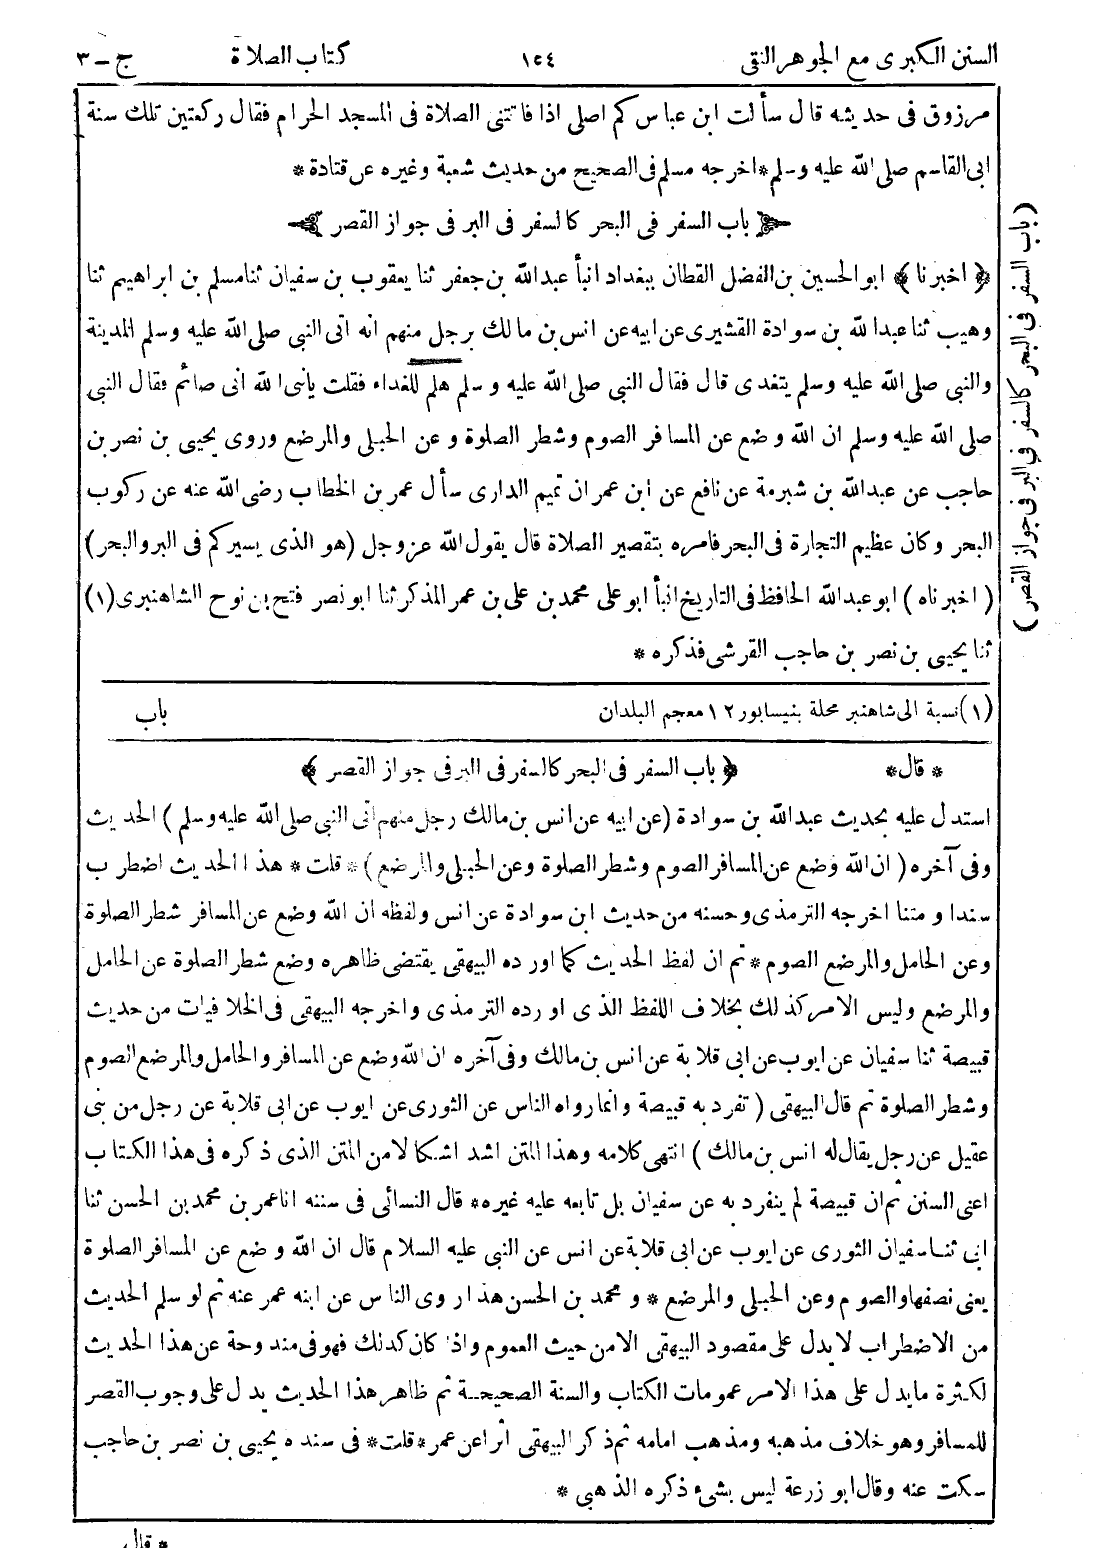 السنن الكبرى مع الجوهر النقى ١٥٤ كتاب الصلاة ج - ٣
مرزوق فى حديثه قال سألت ابن عباس كم اصلى اذا فاتتنى الصلاة فى المسجد الحرام فقال ركعتين تلك سنة
ابى القاسم صلى الله عليه وسلم * اخرجه مسلم فى الصحيح من حديث شعبة وغيره عن قتادة *
باب السفر فى البحر كالسفر فى البر فى جواز القصر
﴿ اخبرنا ﴾ ابو الحسين بن الفضل القطان ببغداد انبأ عبدالله بن جعفر ثنا يعقوب بن سفيان ثنا مسلم بن ابراهيم ثنا
وهيب ثنا عبدالله بن سوادة القشيرى عن ابيه عن انس بن مالك برجل منهم انه اتى النبى صلى الله عليه وسلم المدينة
والنبى صلى الله عليه وسلم يتغدى قال فقال النبى صلى الله عليه وسلم هلم للغداء فقلت يا نبى الله انى صائم فقال النبى
صلى الله عليه وسلم ان الله وضع عن المسافر الصوم وشطر الصلوة وعن الحبلى والمرضع وروى يحيى بن نصر بن
حاجب عن عبدالله بن شبرمة عن نافع عن ابن عمر ان تميم الدارى سأل عمر بن الخطاب رضى الله عنه عن ركوب
البحر وكان عظيم التجارة فى البحر فامره بتقصير الصلاة قال يقول الله عزوجل (هو الذى يسيركم فى البر والبحر)
(اخبرناه) ابو عبدالله الحافظ فى التاريخ انبأ ابو على محمد بن على بن عمر المذكر ثنا ابو نصر فتح بن نوح الشاهنبرى (١)
ثنا يحيى بن نصر بن حاجب القرشى فذكره *
(باب السفر فى البحر كالسفر في البر فى جواز القصر)
(١) نسبة الى شاهنبر محلة بنيسابور ١٢ معجم البلدان باب
* قال * ﴿ باب السفر فى البحر كالسفر فى البر فى جواز القصر ﴾
استدل عليه بحديث عبدالله بن سوادة (عن ابيه عن انس بن مالك رجل منهم اتى النبى صلى الله عليه وسلم) الحديث
وفى آخره (ان الله وضع عن المسافر الصوم وشطر الصلوة وعن الحبلى والمرضع) * قلت * هذا الحديث اضطرب
سندا ومتنا اخرجه الترمذى وحسنه من حديث ابن سوادة عن انس ولفظه ان الله وضع عن المسافر شطر الصلوة
وعن الحامل والمرضع الصوم * ثم ان لفظ الحديث كما اورده البيهقى يقتضى ظاهره وضع شطر الصلوة عن الحامل
والمرضع وليس الامر كذلك بخلاف اللفظ الذى اورده الترمذى واخرجه البيهقى فى الخلافيات من حديث
قبيصة ثنا سفيان عن ايوب عن ابى قلابة عن انس بن مالك وفى آخره ان الله وضع عن المسافر والحامل والمرضع الصوم
وشطر الصلوة ثم قال البيهقى (تفرد به قبيصة وانما رواه الناس عن الثورى عن ايوب عن ابى قلابة عن رجل من بنى
عقيل عن رجل يقال له انس بن مالك) انتهى كلامه وهذا المتن اشد اشكالا من المتن الذى ذكره فى هذا الكتاب
اعنى السنن ثم ان قبيصة لم ينفرد به عن سفيان بل تابعه عليه غيره * قال النسائى فى سننه انا عمر بن محمد بن الحسن ثنا
ابى ثنا سفيان الثورى عن ايوب عن ابى قلابة عن انس عن النبى عليه السلام قال ان الله وضع عن المسافر الصلوة
يعنى نصفها والصوم وعن الحبلى والمرضع * و محمد بن الحسن هذا روى الناس عن ابنه عمر عنه ثم لو سلم الحديث
من الاضطراب لا يدل على مقصود البيهقى الا من حيث العموم واذا كان كذلك فهو فى مندوحة عن هذا الحديث
لكثرة ما يدل على هذا الامر عمومات الكتاب والسنة الصحيحة ثم ظاهر هذا الحديث يدل على وجوب القصر
للمسافر وهو خلاف مذهبه ومذهب امامه ثم ذكر البيهقى اثرا عن عمر * قلت * فى سنده يحيى بن نصر بن حاجب
سكت عنه وقال ابو زرعة ليس بشىء ذكره الذهبى *
* قال